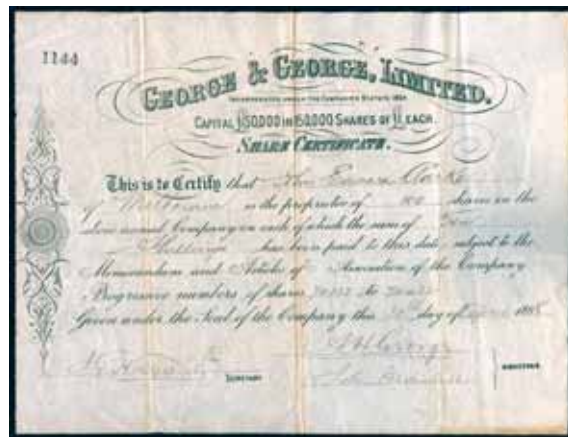 1144
GEORGE & GEORGE, LIMITED.
INCORPORATED UNDER THE COMPANIES STATUTE 1864
CAPITAL £150,000 IN 150,000 SHARES OF £1 EACH.
SHARE CERTIFICATE.
This is to Certify that Clarke
of Melbourne is the proprietor of 100 shares in the
above named Company on each of which the sum of
Shillings has been paid to this date, subject to the
Memorandum and Articles of Association of the Company
Progressive numbers of shares to
Given under the Seal of the Company this day of 1888
George
SECRETARY
DIRECTORS